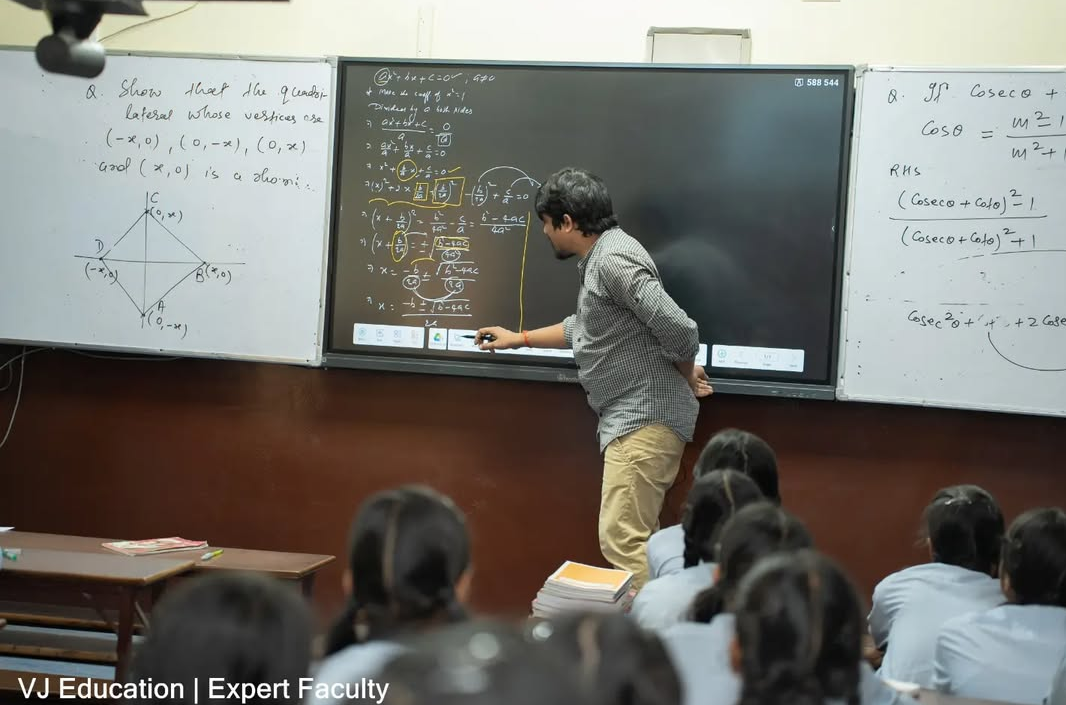 Q. Show that the quadri-
lateral whose vertices are
(-x,0), (0,-x), (0,x)
and (x,0) is a
C
(0,x)
D
(-x,0)
B(x,0)
A
(0,-x)
ax²+bx+c=0, a≠0
* Make the coeff of x²=1
Dividing by a both sides
⇒ ax²+bx+c/a = 0/a
⇒ ax²/a + bx/a + c/a = 0
⇒ x² + b/a x + c/a = 0
⇒ (x)² + 2·x b/2a + (b/2a)² - (b/2a)² + c/a = 0
⇒ (x + b/2a)² = b²/4a² - c/a = b²-4ac/4a²
⇒ (x + b/2a) = ± √b²-4ac
⇒ x = -b/2a ± √b²-4ac/2a
⇒ x = -b ± √b²-4ac
588 544
Q. If Cosecθ +
Cosθ = m²-1/m²+1
RHS
(Cosecθ + Cotθ)² - 1
(Cosecθ + Cotθ)² + 1
Cosec²θ + + 2 Cose
VJ Education | Expert Faculty